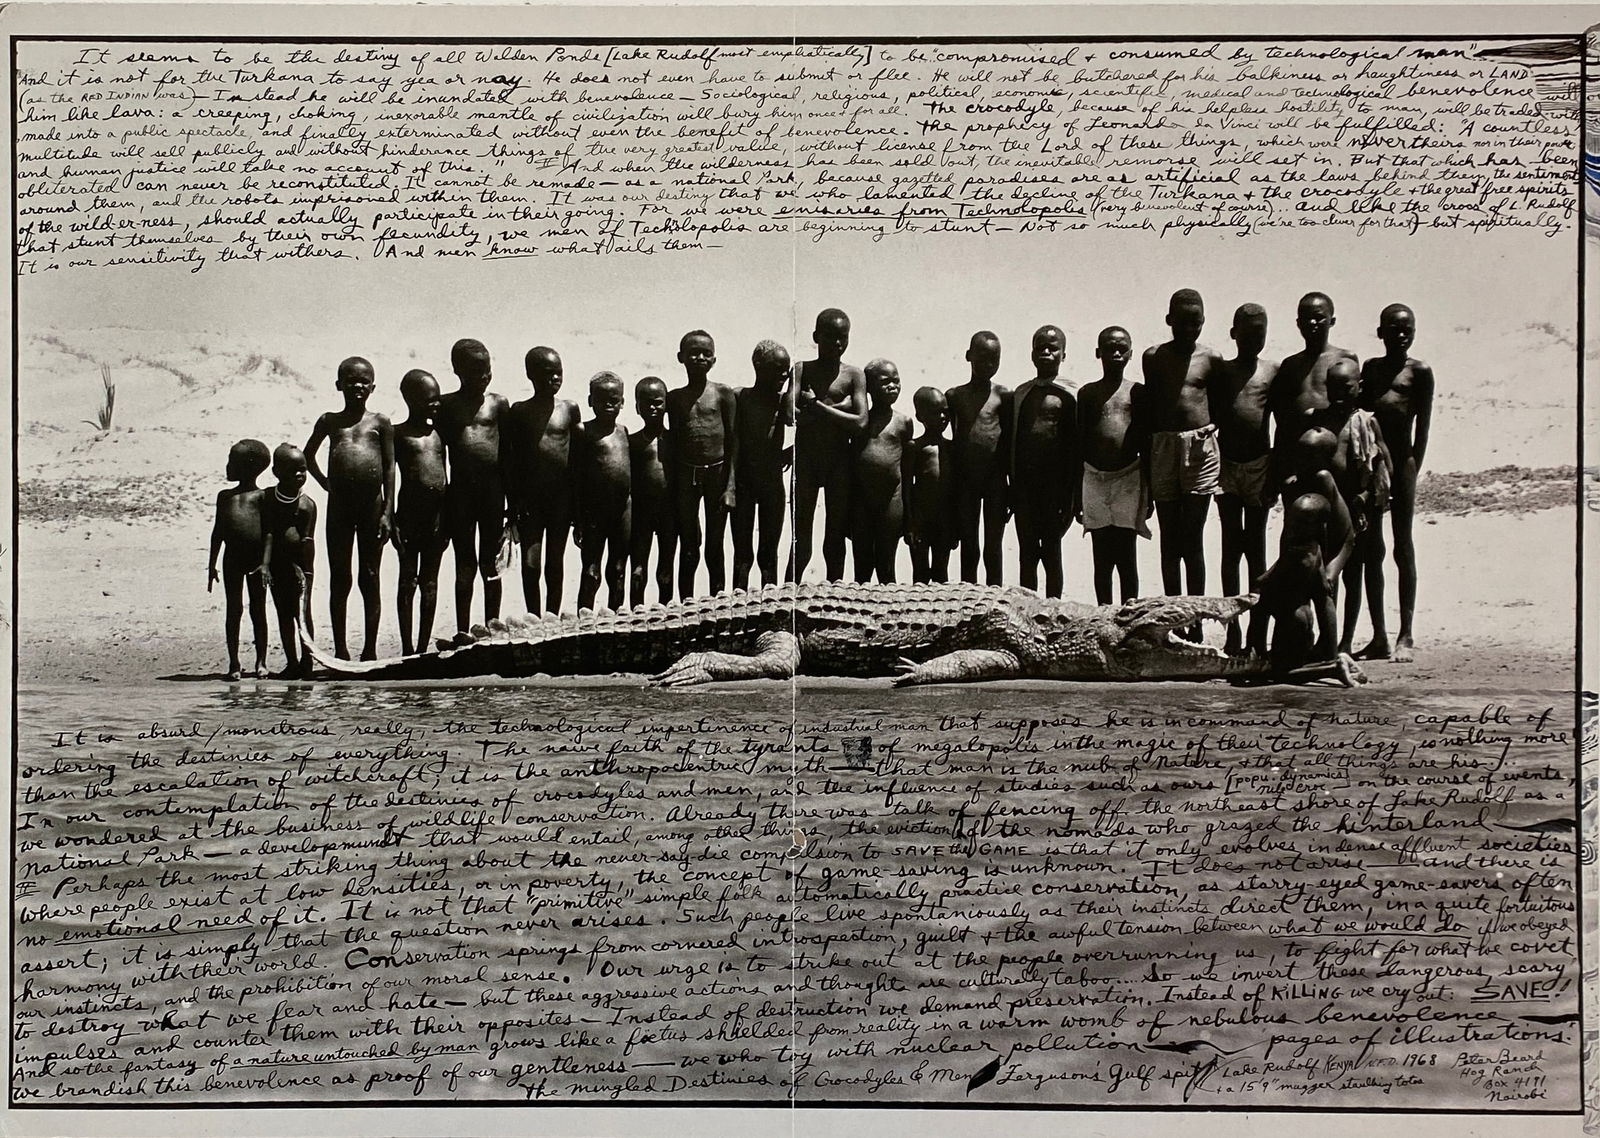 It seems to be the destiny of all Walden Ponds [Lake Rudolf most emphatically] to be "compromised & consumed by technological man"
And it is not for the Turkana to say yea or nay. He does not even have to submit or flee. He will not be butchered for his balkiness or haughtiness or LAND
(as the RED INDIAN was) — Instead he will be inundated with benevolence — Sociological, religious, political, economic, scientific, medical and technological benevolence will
him like lava: a creeping, choking, inexorable mantle of civilization will bury him once & for all. The crocodyle, because of his helpless hostility to man, will be traded with
, made into a public spectacle, and finally exterminated without even the benefit of benevolence. The prophecy of Leonardo da Vinci will be fulfilled: "A countless
multitude will sell publicly and without hinderance things of the very greatest value, without license from the Lord of these things, which were never theirs nor in their power
and human justice will take no account of this." And when the wilderness has been sold out, the inevitable remorse will set in. But that which has been
obliterated can never be reconstituted. It cannot be remade — as a national Park, because gazetted paradises are as artificial as the laws behind them, the sentiment
around them, and the robots imprisoned within them. It was our destiny that we who lamented the decline of the Turkana & the crocodyle & the great free spirits
of the wilderness, should actually participate in their going. For we were emissaries from Technolopolis (very benevolent of course)... and like the crocs of L. Rudolf
that stunt themselves by their own fecundity, we men of Technolopolis are beginning to stunt — Not so much physically (we're too clever for that) — but spiritually.
It is our sensitivity that withers. And men know what ails them —
It is absurd / monstrous, really, the technological impertinence of industrial man that supposes he is in command of nature, capable of
ordering the destinies of everything. The naive faith of the tyrants of megalopolis in the magic of their technology, is nothing more
than the escalation of witchcraft; it is the anthropocentric myth — that man is the nub of Nature & that all things are his...
In our contemplation of the destinies of crocodyles and men, and the influence of studies such as ours [popu. dynamics nile croc] on the course of events,
we wondered at the business of wildlife conservation. Already there was talk of fencing off the northeast shore of Lake Rudolf as a
National Park — a development that would entail, among other things, the eviction of the nomads who grazed the hinterland
Perhaps the most striking thing about the never-say-die compulsion to SAVE the GAME is that it only evolves in dense affluent societies
where people exist at low densities, or in poverty, the concept of game-saving is unknown. It does not arise — and there is
no emotional need of it. It is not that "primitive" simple folk automatically practice conservation, as starry-eyed game-savers often
assert; it is simply that the question never arises. Such people live spontaniously as their instincts direct them, in a quite fortuitous
harmony with their world. Conservation springs from cornered introspection, guilt & the awful tension between what we would do if we obeyed
our instincts, and the prohibition of our moral sense. Our urge is to strike out at the people overrunning us, to fight for what we covet
to destroy what we fear and hate — but these aggressive actions and thoughts are culturally taboo... So we invert these dangerous, scary,
impulses and counter them with their opposites — Instead of destruction we demand preservation. Instead of KILLING we cry out: SAVE!
And so the fantasy of a nature untouched by man grows like a foetus shielded from reality in a warm womb of nebulous benevolence
we brandish this benevolence as proof of our gentleness — we who toy with nuclear pollution — pages of illustrations.
The Mingled Destinies of Crocodyles & Men Ferguson's Gulf spit Lake Rudolf KENYA N.F.D. 1968
& a 15'9" mugger
Peter Beard
Hog Ranch
Box 4191
Nairobi